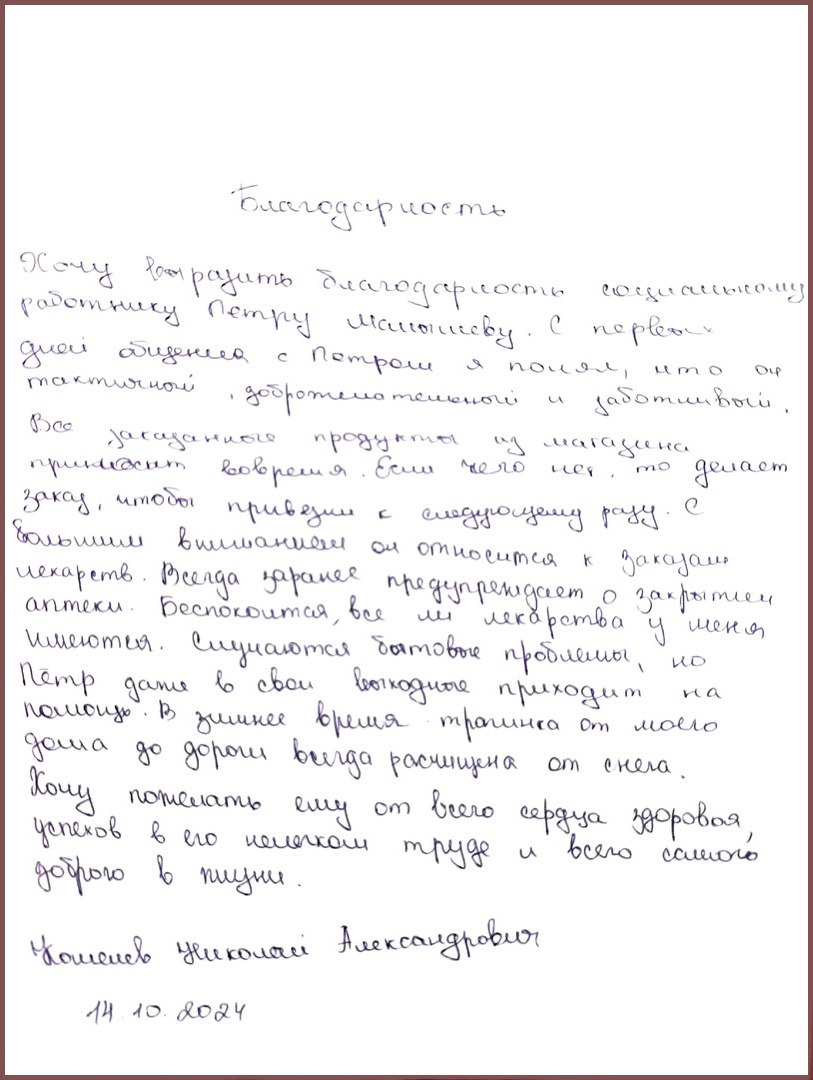 Благодарность
Хочу выразить благодарность социальному
работнику Петру Малышеву. С первых
дней общения с Петром я понял, что он
тактичный, доброжелательный и заботливый.
Все заказанные продукты из магазина
приносит вовремя. Если чего нет, то делает
заказ, чтобы привезли к следующему разу. С
большим вниманием он относится к заказам
лекарств. Всегда заранее предупреждает о закрытии
аптеки. Беспокоится, все ли лекарства у меня
имеются. Случаются бытовые проблемы, но
Пётр даже в свои выходные приходит на
помощь. В зимнее время тропинка от моего
дома до дороги всегда расчищена от снега.
Хочу пожелать ему от всего сердца здоровья,
успехов в его нелегком труде и всего самого
доброго в жизни.
Кошелев Николай Александрович
14.10.2024